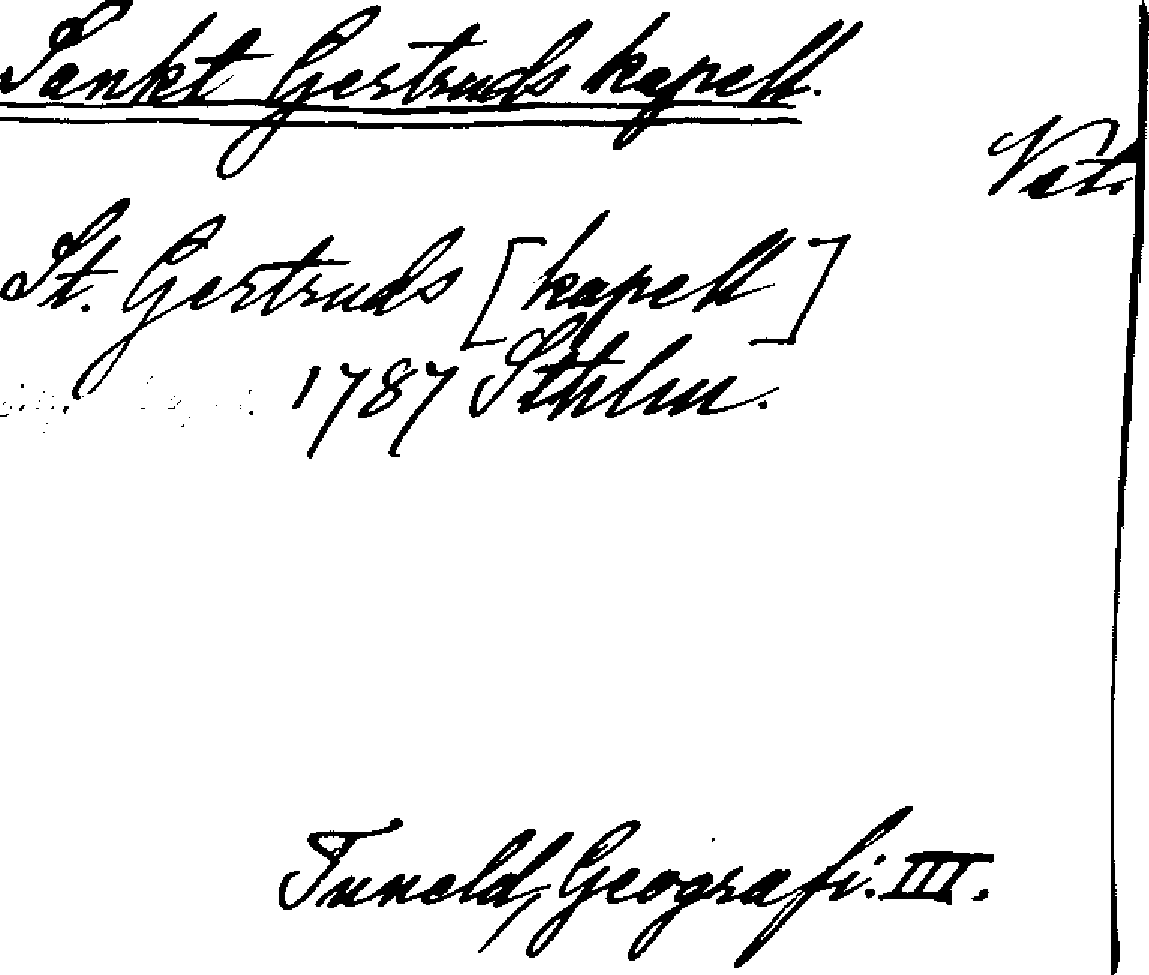 Sankt Gertruds kapell.
Vst.
St. Gertruds [kapell]
1787 Sthlm.
Tuneld, Geografi: III.